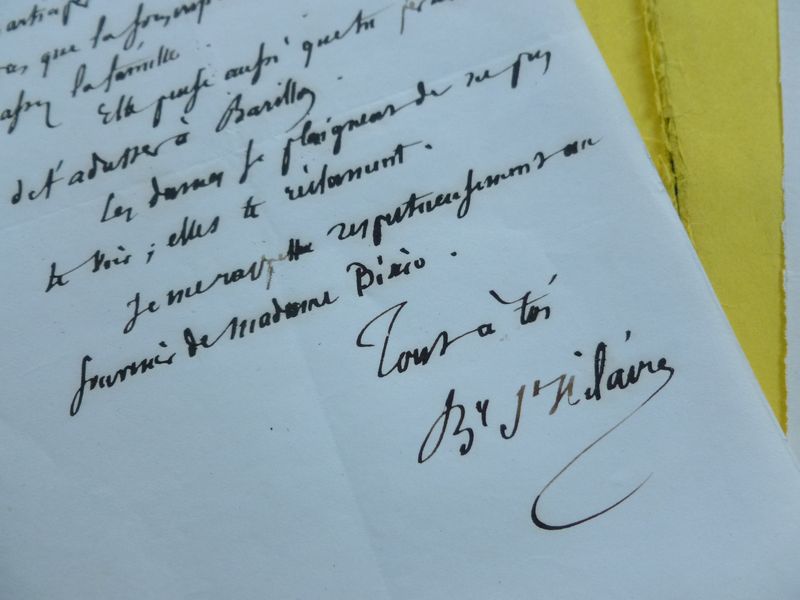 que la souscrip
assez la famille.
Elle pense aussi que tu
de t'adresser à Barillon.
Les dames se plaignent de ne pas
te voir ; elles te réclament.
Je me rappelle respectueusement au
souvenir de madame Bixio.
Tout à toi
By St Hilaire